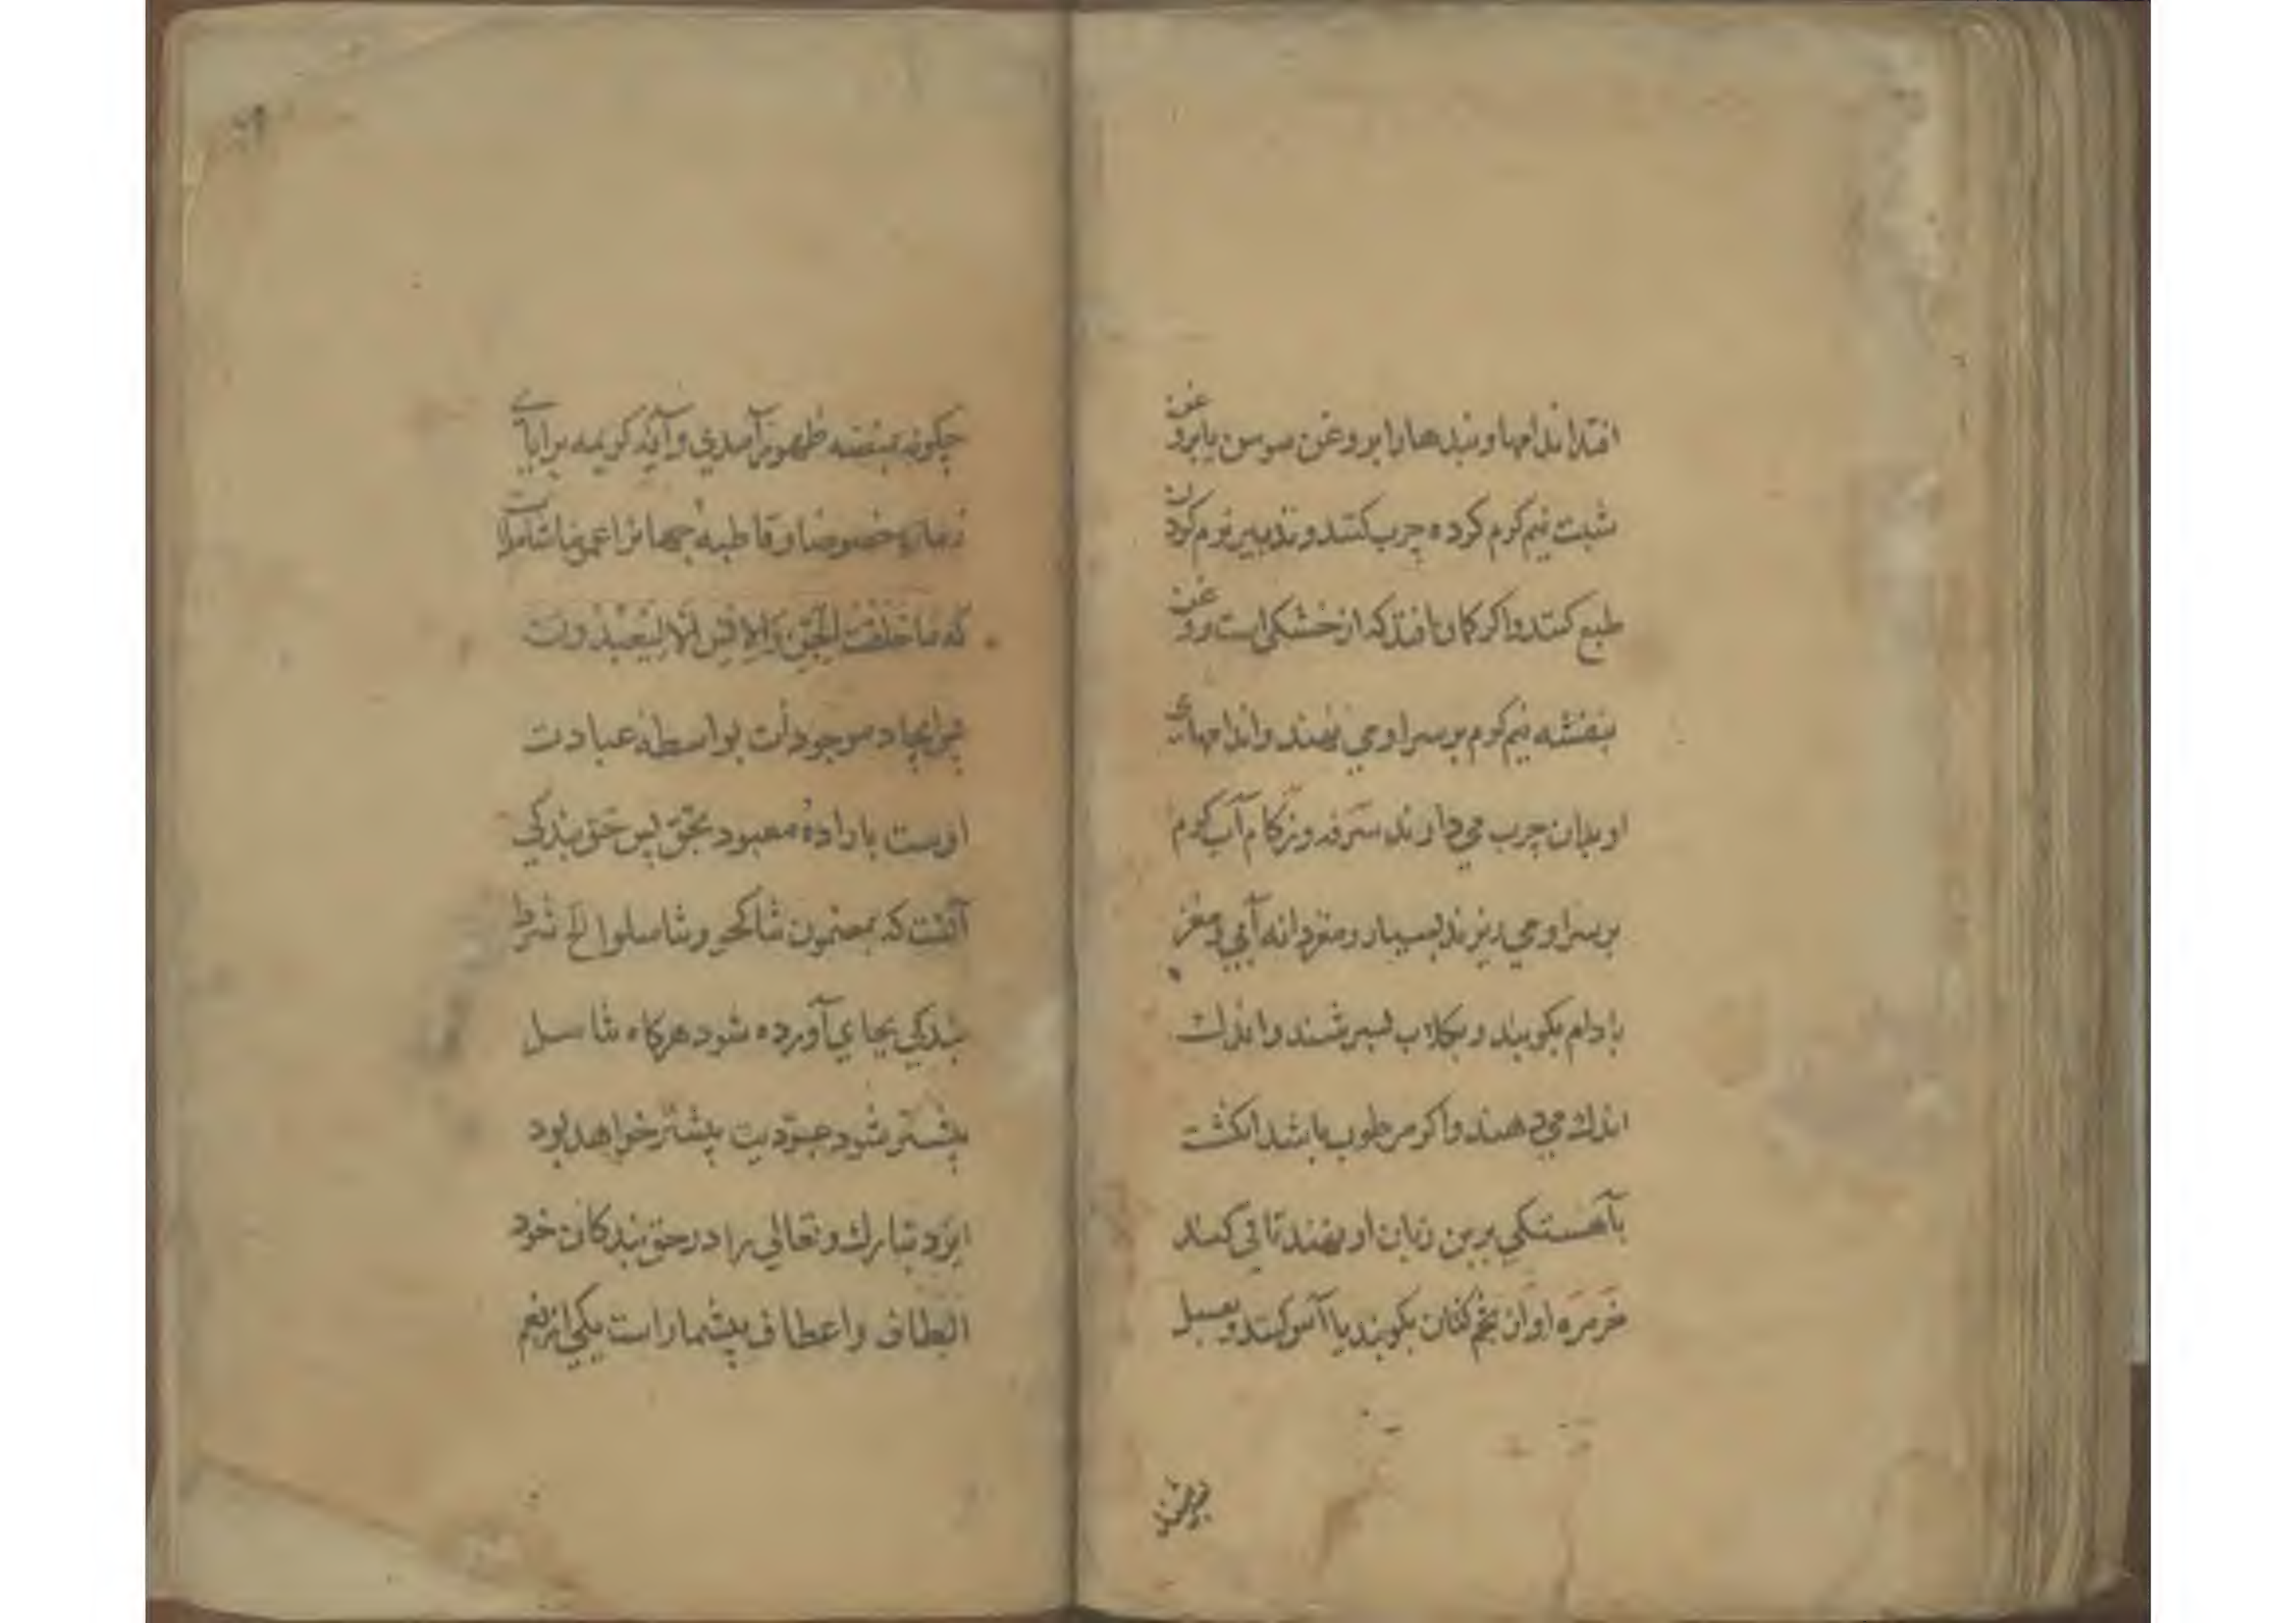 افتد اندامها و بندها را بروغن سوسن یا بروغن
شبت نیم کرم کرده چرب کنند و تدبیر نرم کردن
طبع کنند و اکر کمان افتد که از خشکی است روغن
بنفشه نیم کرم بر سر او می نهند و اندامهای
او بدان چرب می دارند سرفه و زکام آب کرم
بر سر او می ریزند بسیار و مغزدانه آبی و مغز
بادام بکوبند و بجلاب بسرشند و اندك
اندك می دهند و اکر مرطوب باشد انکشت
بآهستکی بر بن زبان او نهند تا قی کند
خرخره او از تخم کتان بکوبند یا آس کنند و بعسل
چکونه بمنصه ظهور آمدی و آیه کریمه برایای
زمانه خصوصا و قاطبه جهانرا عموما شاملات
که ما خلقت الجن و الانس الا لیعبدون
پس ایجاد موجودات بواسطه عبادت
اوست باراده معبود بحق پس حق بندکی
آنست که بمضمون تناکحو و تناسلوا الخ شرط
بندکی بجای آورده شود هرکاه تناسل
بیشتر شود عبودیت بیشتر خواهد بود
ایزد تبارك و تعالی را در حق بندکان خود
الطاف و اعطاف بیشمار است یکی از نعم